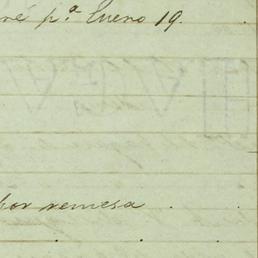 ré pª Enero 19.
por remesa